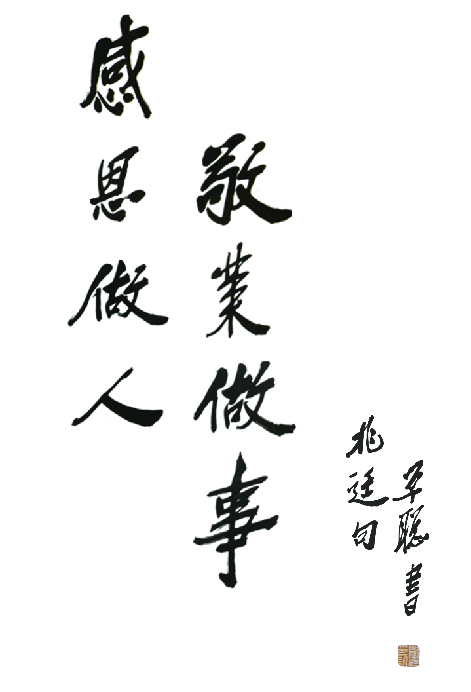 感恩做人
敬業做事
兆廷句
聪書